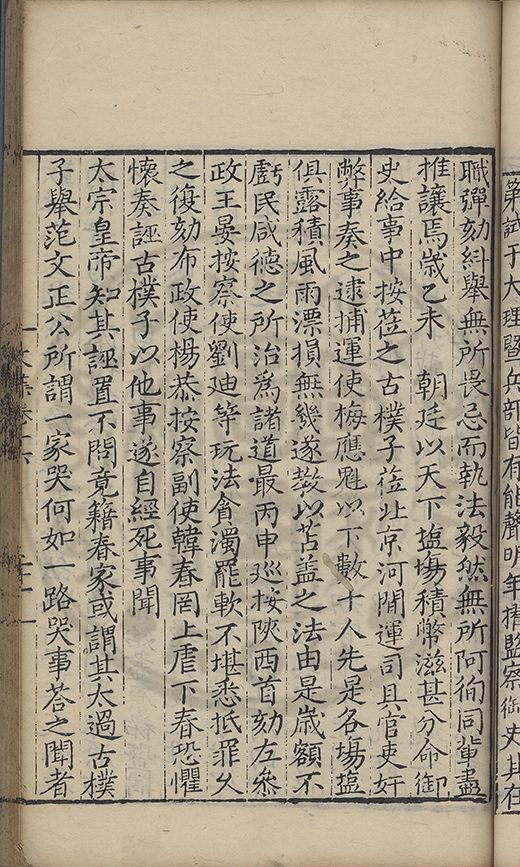 第試于大理暨兵部皆有能聲明年擢監察御史其在
職彈劾糾舉無所畏忌而執法毅然無所阿徇同軰盡
推讓焉歲乙未　朝廷以天下塩場積幣滋甚分命御
史給事中按莅之古樸子莅北京河間運司具官吏奸
弊事奏之逮捕運使梅應魁以下數十人先是各場塩
俱露積風雨漂損無幾遂教以苫盖之法由是歲額不
虧民咸德之所治爲諸道最丙申廵按陜西首劾左叅
政王晏按察使劉廸等玩法貪濁罷軟不堪悉抵罪乆
之復劾布政使楊恭按察副使韓春罔上虐下春恐懼
懷奏誣古樸子以他事遂自經死事聞
太宗皇帝知其誣置不問竟籍春家或謂其太過古樸
子舉范文正公所謂一家哭何如一路哭事荅之聞者
文集卷十六